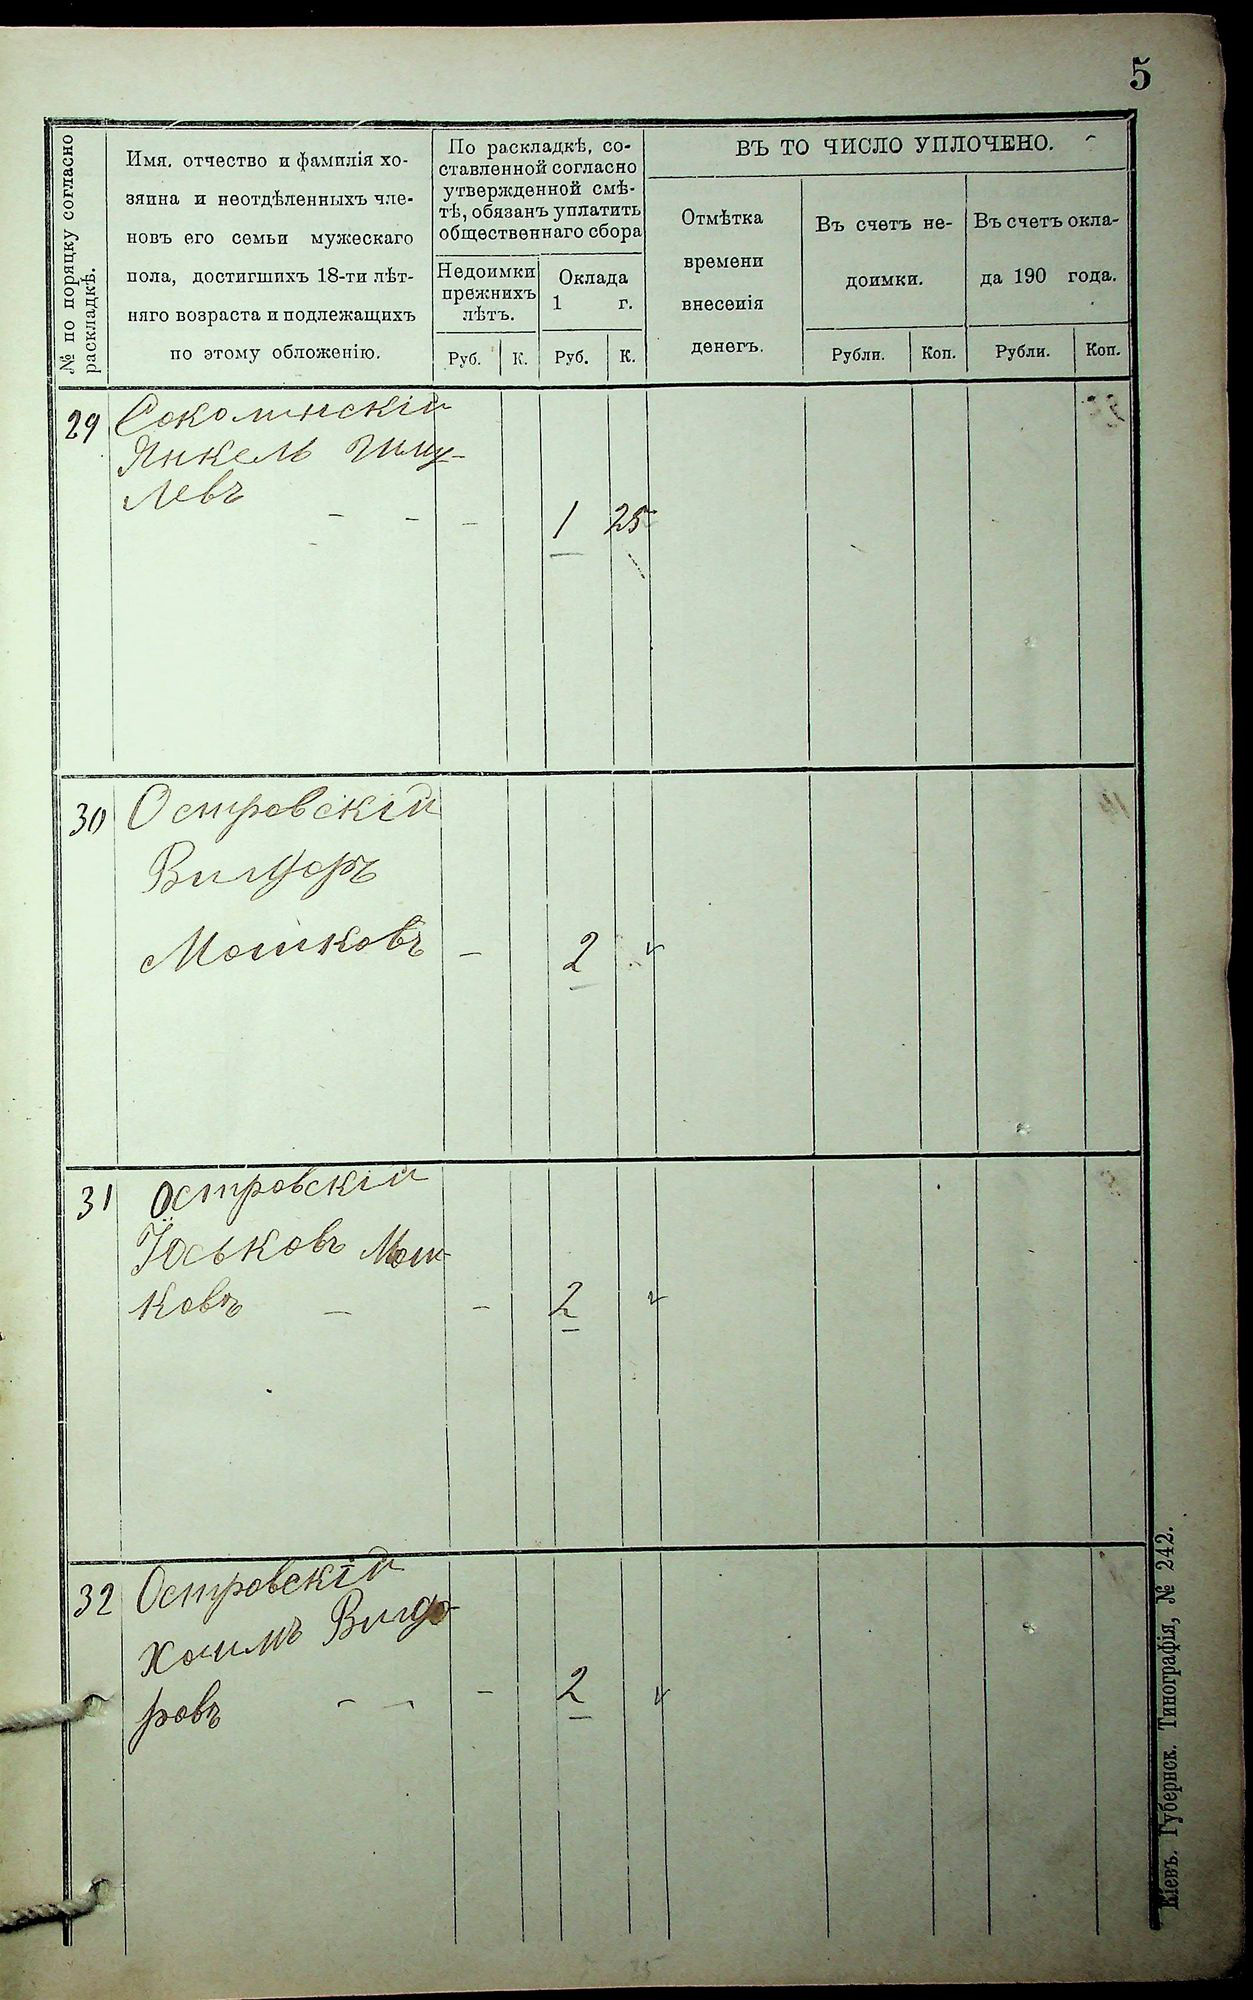 5
№ по поряцку согласно
раскладкѣ.
Имя. отчество и фамилія хо-
зяина и неотдѣленныхъ чле-
новъ его семьи мужескаго
пола, достигшихъ 18-ти лѣт-
няго возраста и подлежащихъ
по этому обложенію.
По раскладкѣ, со-
ставленной согласно
утвержденной смѣ-
тѣ, обязанъ уплатить
общественнаго сбора
Недоимки
прежнихъ
лѣтъ.
Оклада
1 г.
Руб.
К.
Руб.
К.
ВЪ ТО ЧИСЛО УПЛОЧЕНО.
Отмѣтка
времени
внесенія
денегъ.
Въ счетъ не-
доимки.
Въ счетъ окла-
да 190 года.
Рубли.
Коп.
Рубли.
Коп.
29 Соколинскій
Янкель
левъ - - - 1 25
30 Островскій
Вигдоръ
Мошковъ - 2 "
31 Островскій
Юськовъ Мош-
ковъ - - 2 "
32 Островскій
Хаимъ Вигдо-
ровъ - - - 2 "
Кіевъ. Губернск. Типографія, № 242.